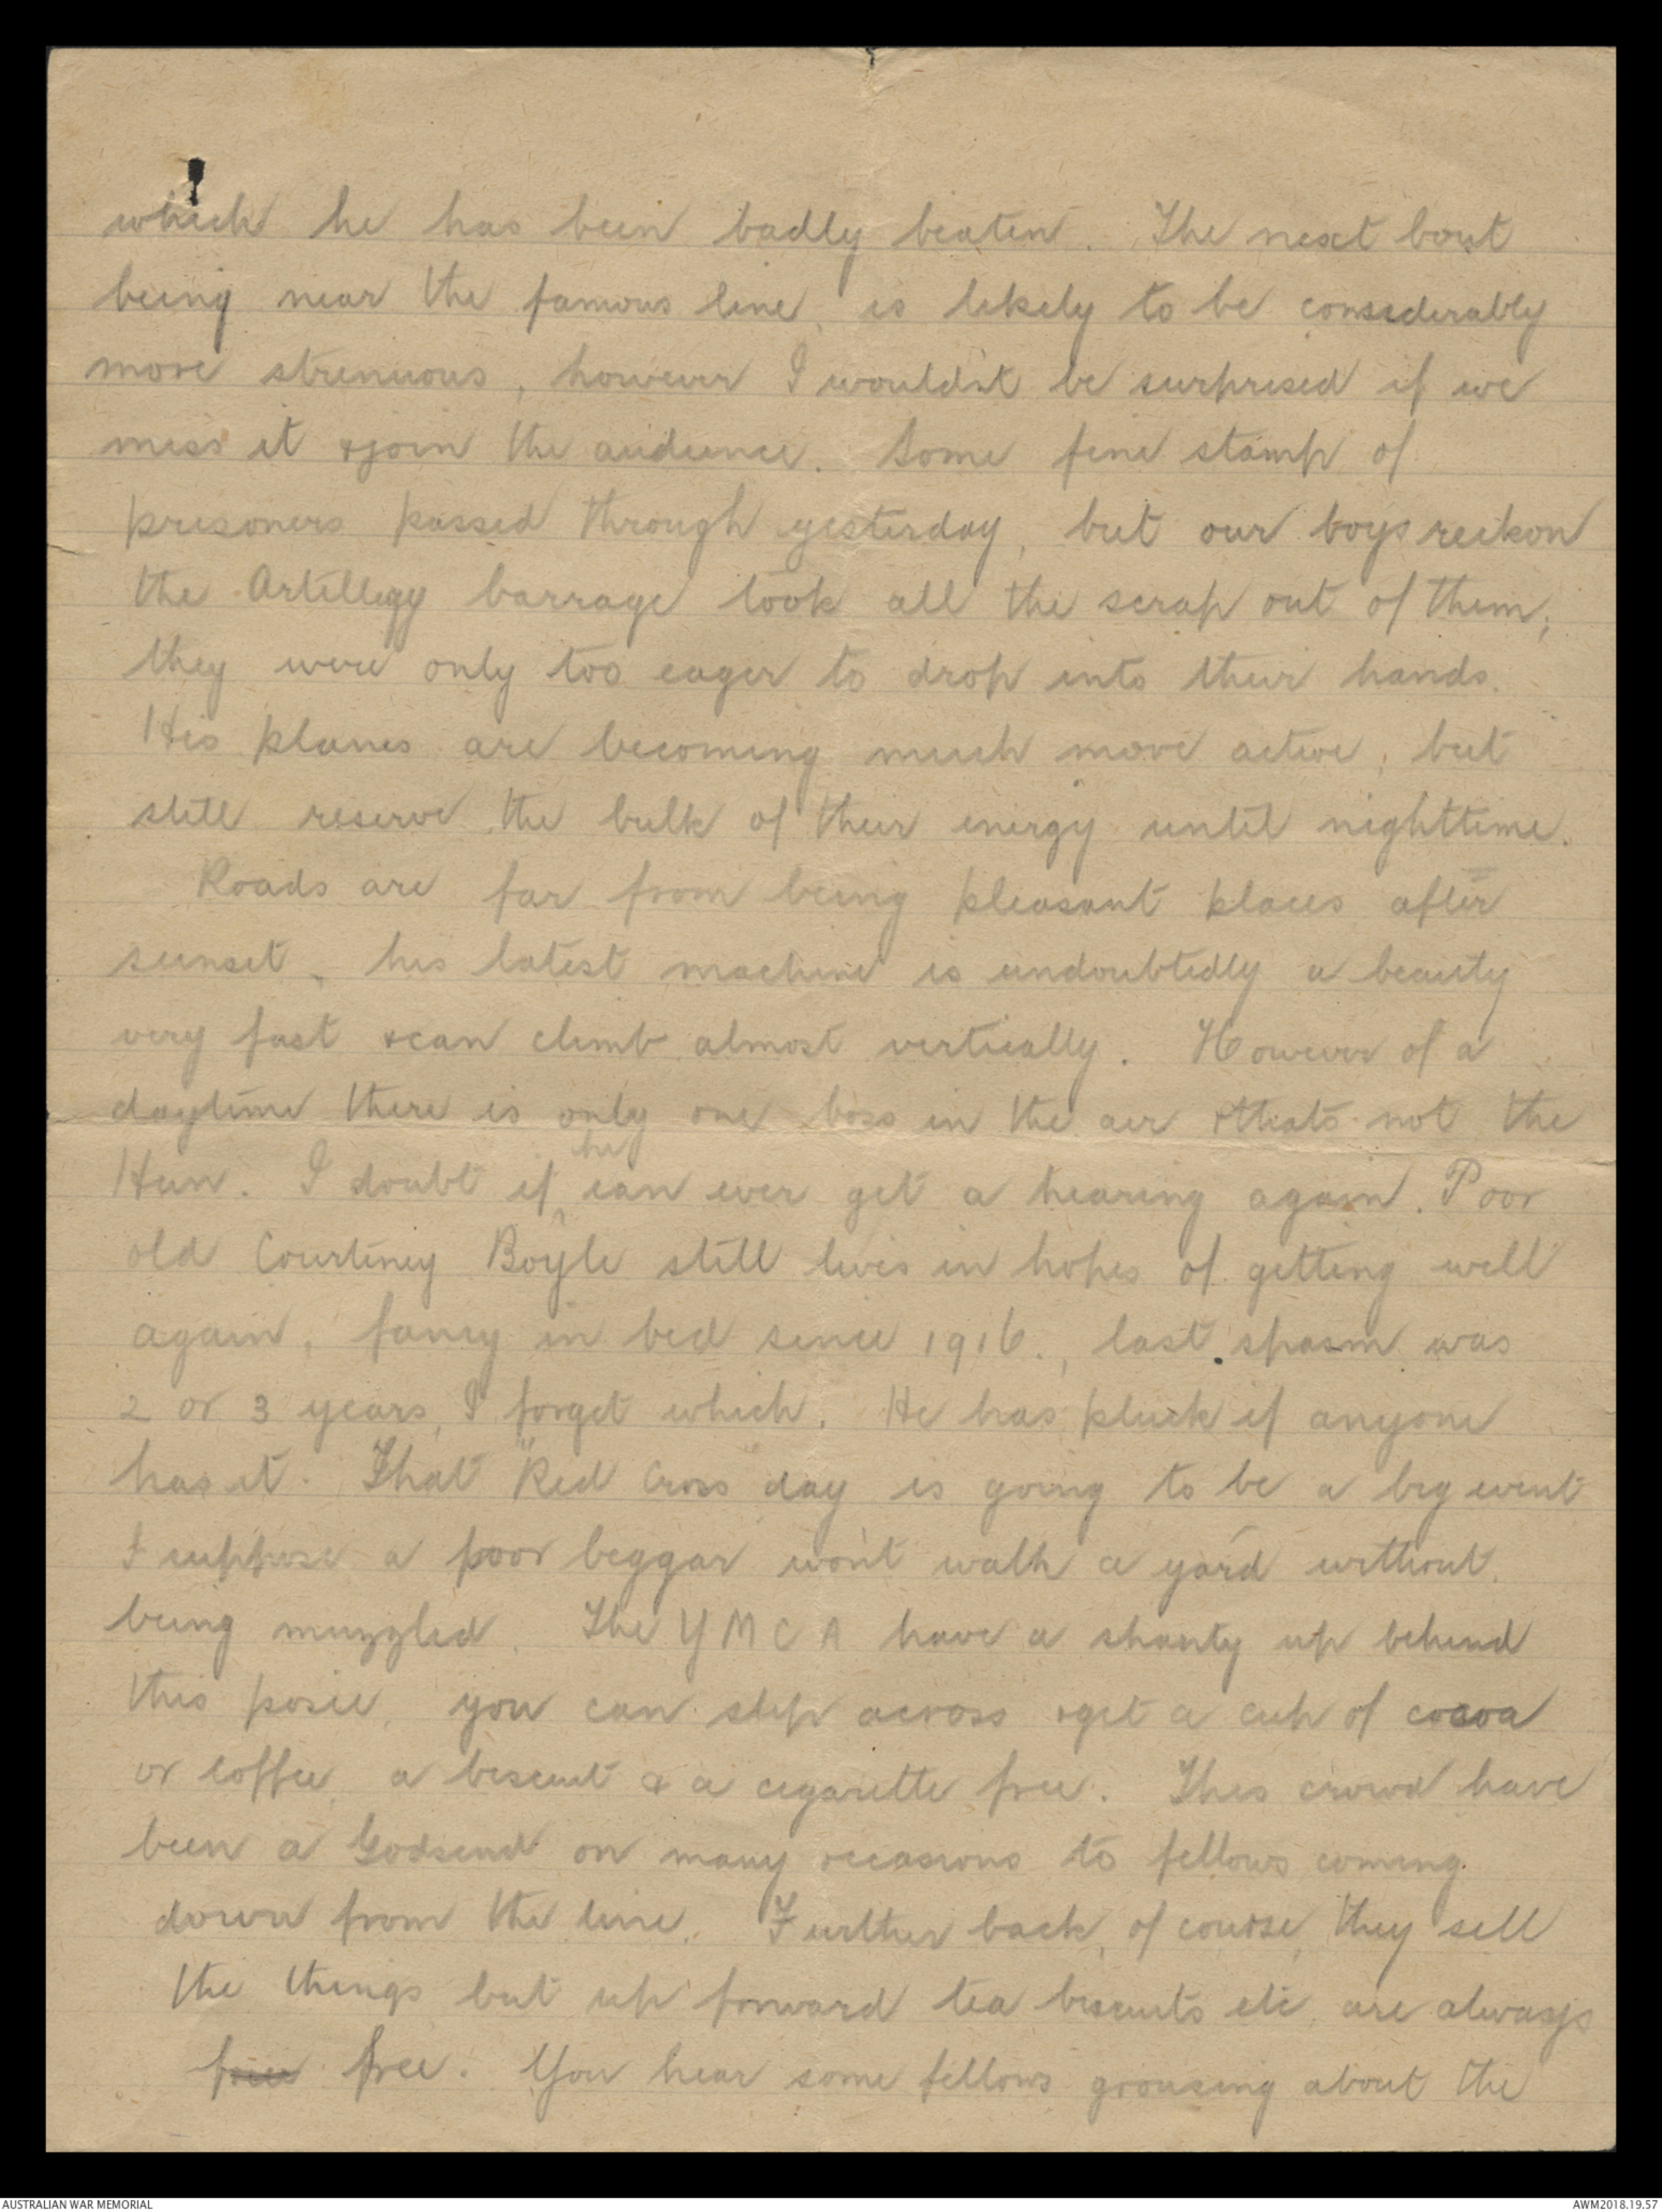 which he has been badly beaten. The next bout
being near the famous line, is likely to be considerably
more strenuous, however I wouldn't be surprised if we
miss it & join the audience. Some fine stamp of
prisoners passed through yesterday, but our boys reckon
the Artillery barrage took all the scrap out of them,
they were only too eager to drop into their hands.
His planes are becoming much more active, but
still reserve the bulk of their energy until nighttime.
Roads are far from being pleasant places after
sunset, his latest machine is undoubtedly a beauty
very fast & can climb almost vertically. However of a
daytime there is only one boss in the air & thats not the
Hun. I doubt if he can ever get a hearing again. Poor
old Courteney Boyle still lives in hopes of getting well
again, fancy in bed since 1916., last spasm was
2 or 3 years, I forget which. He has pluck if anyone
has it. That "Red Cross day is going to be a big event
I suppose a poor beggar won't walk a yard without
being muzzled. The Y M C A have a shanty up behind
this posie, you can slip across & get a cup of cocoa
or coffee, a biscuit & a cigarette free. This crowd have
been a Godsend on many occasions to fellows coming
down from the line. Further back, of course, they sell
the things but up forward tea biscuits etc, are always
free free. You hear some fellows grousing about the
AUSTRALIAN WAR MEMORIAL
AWM2018.19.57